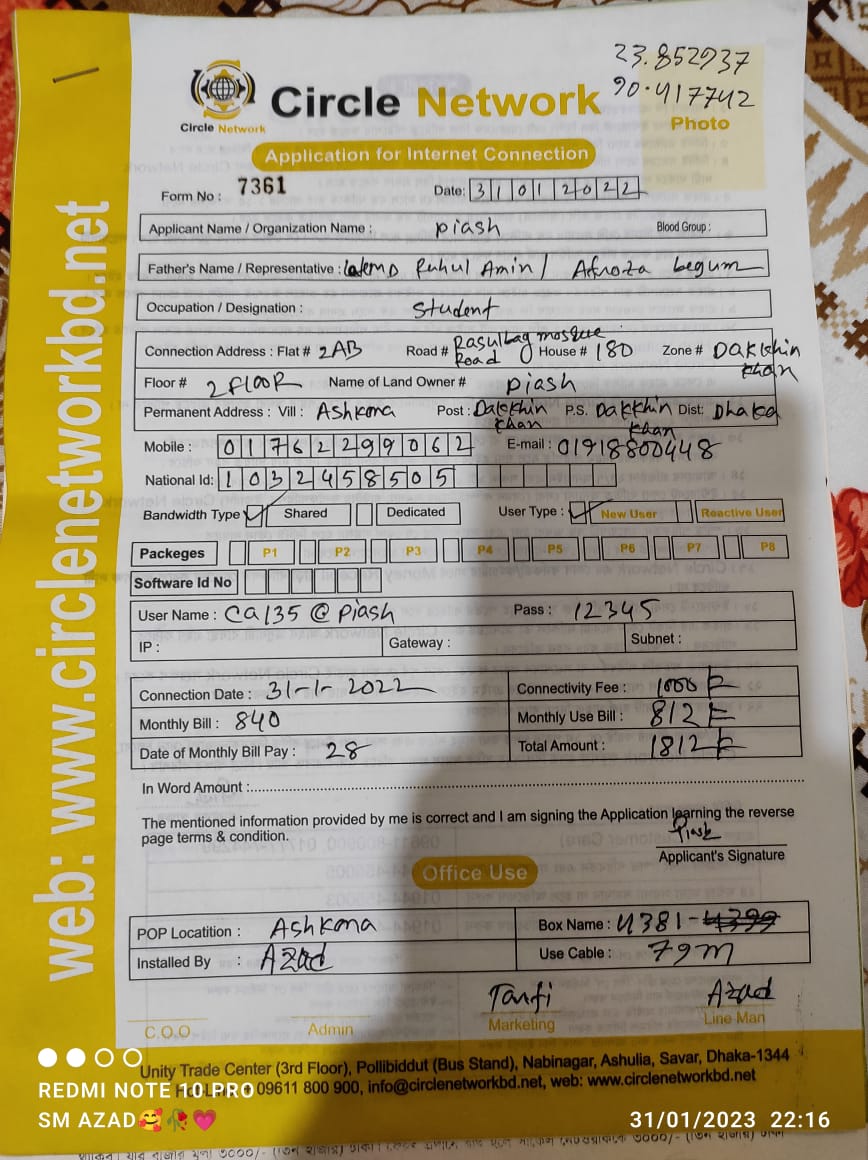 23.852937
90.417742
Circle Network
Circle Network
Photo
Application for Internet Connection
Form No : 7361 Date: 31012022
Applicant Name / Organization Name : piash Blood Group :
Father's Name / Representative : Ruhul Amin / Afroza begum
Occupation / Designation : Student
Connection Address : Flat # 2AB Road # Rasulbag mosque Road House # 180 Zone # Dakkhin khan
Floor # 2 FlOOR Name of Land Owner # piash
Permanent Address : Vill : Ashkona Post : Dakkhin khan P.S. Dakkhin khan Dist: Dhaka
Mobile : 01762299062 E-mail : 01918800448
National Id: 1032458505
Bandwidth Type Shared Dedicated User Type : New User Reactive User
Packeges P1 P2 P3 P4 P5 P6 P7 P8
Software Id No
User Name : Ca135 @ piash Pass : 12345
IP : Gateway : Subnet :
Connection Date : 31-1-2022 Connectivity Fee : 1000
Monthly Bill : 840 Monthly Use Bill : 812
Date of Monthly Bill Pay : 28 Total Amount : 1812
In Word Amount :
The mentioned information provided by me is correct and I am signing the Application learning the reverse
page terms & condition.
Piash
Applicant's Signature
Office Use
POP Locatition : Ashkona Box Name : 4381-4399
Installed By : Azad Use Cable : 79m
Tanfi Azad
C.O.O Admin Marketing Line Man
Unity Trade Center (3rd Floor), Pollibiddut (Bus Stand), Nabinagar, Ashulia, Savar, Dhaka-1344
09611 800 900, info@circlenetworkbd.net, web: www.circlenetworkbd.net
web: www.circlenetworkbd.net
REDMI NOTE 10 PRO
SM AZAD🥰🥀💗 31/01/2023 22:16